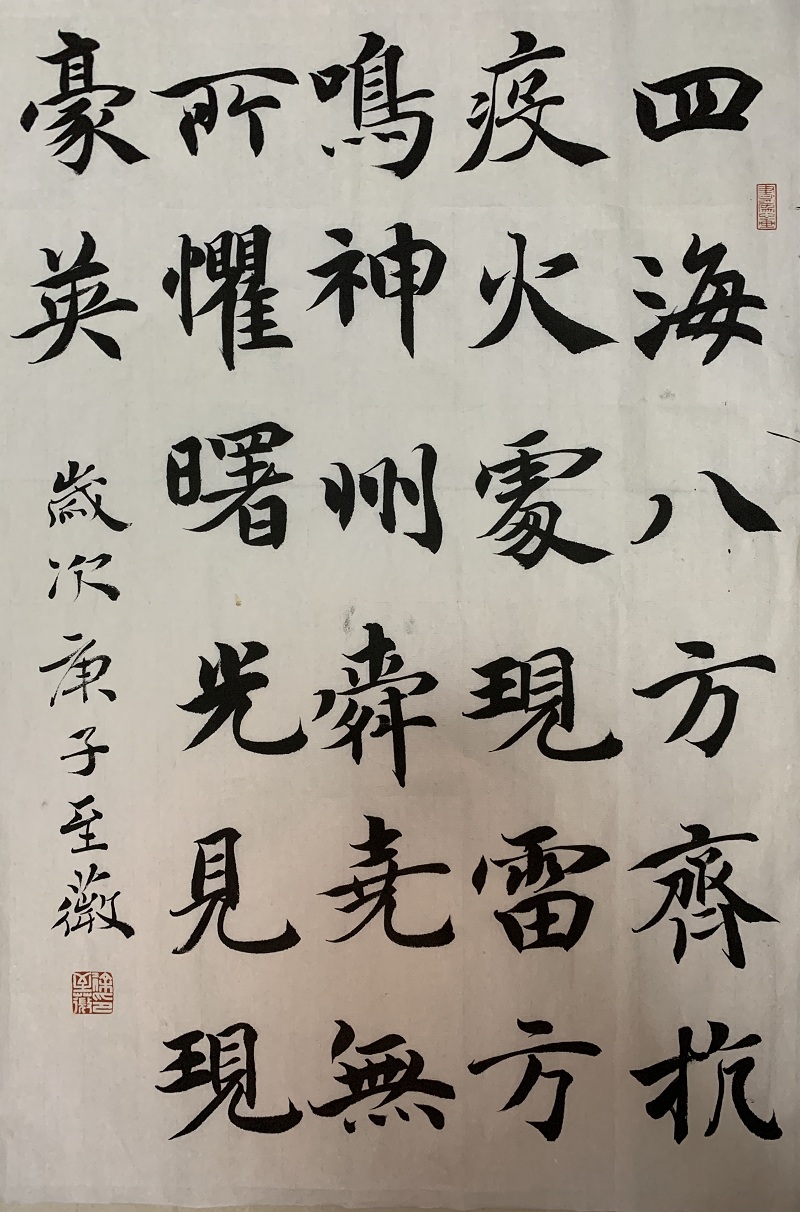 四海八方齊抗
疫火處現雷方
鳴神州舜堯無
所懼曙光見現
豪英
歲次庚子至薇